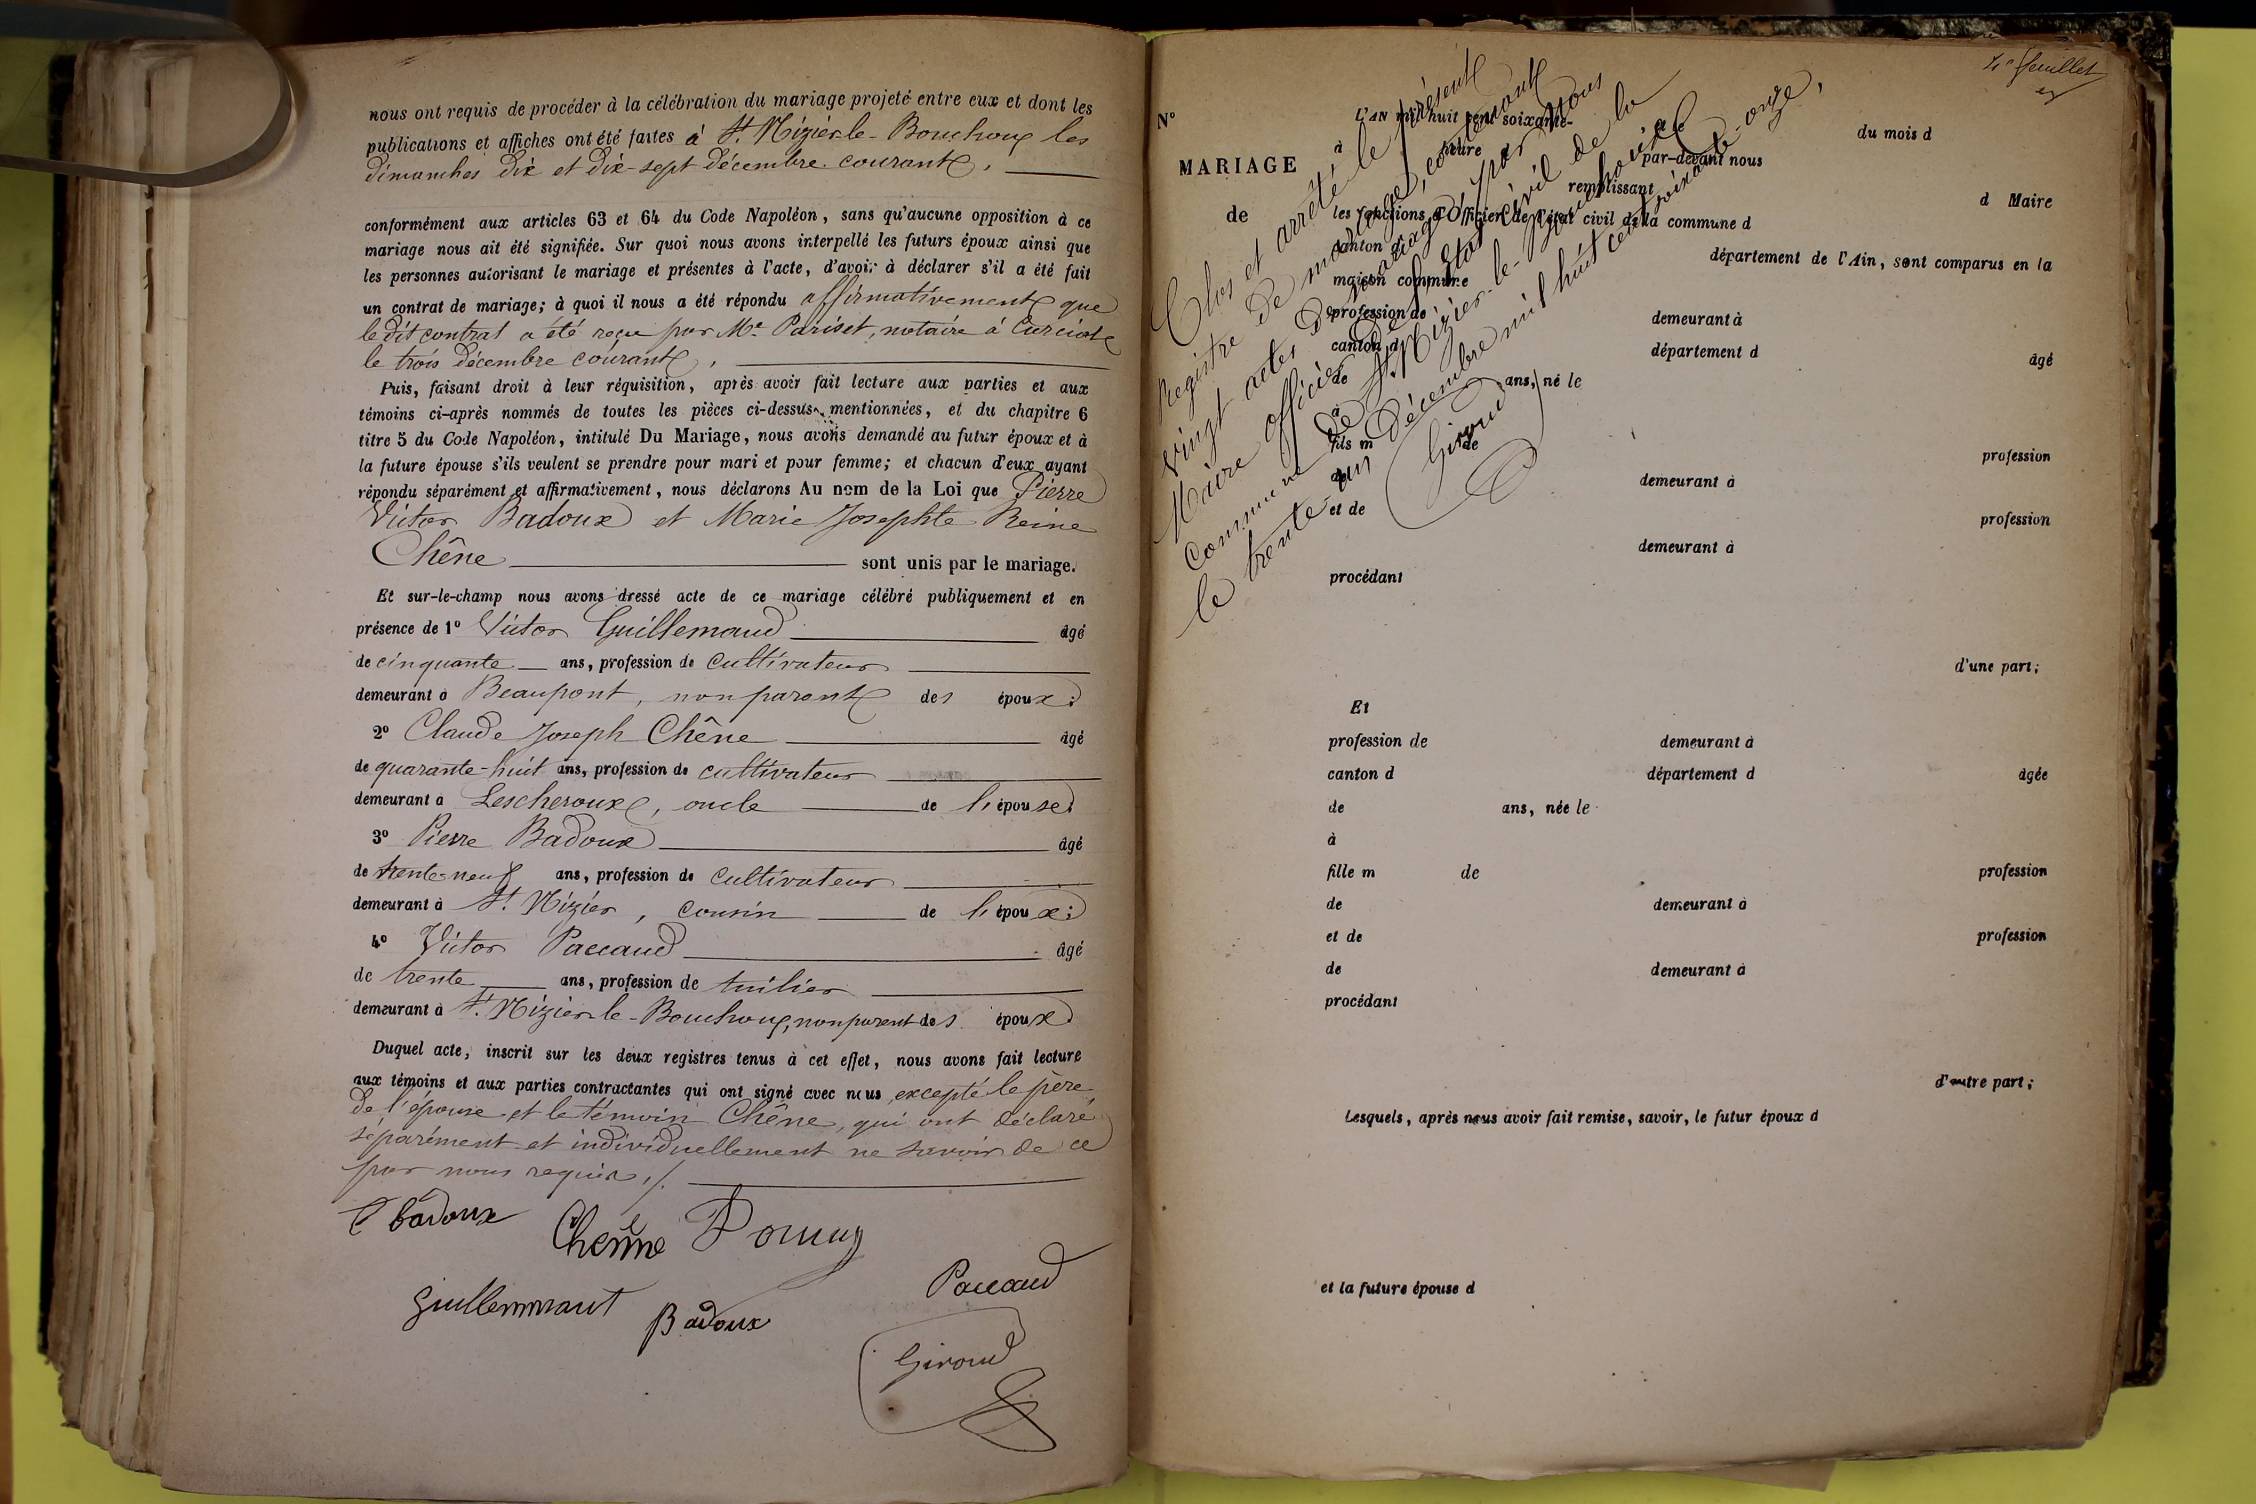 nous ont requis de procéder à la célébration du mariage projeté entre eux et dont les
publications et affiches ont été faites à St. Nizier-le-Bouchoux les
dimanches dix et dix-sept décembre courant,
conformément aux articles 63 et 64 du Code Napoléon, sans qu'aucune opposition à ce
mariage nous ait été signifiée. Sur quoi nous avons interpellé les futurs époux ainsi que
les personnes autorisant le mariage et présentes à l'acte, d'avoir à déclarer s'il a été fait
un contrat de mariage; à quoi il nous a été répondu affirmativement que
le dit contrat a été reçu par Me. Pariset, notaire à Curciat
le trois décembre courant,
Puis, faisant droit à leur réquisition, après avoir fait lecture aux parties et aux
témoins ci-après nommés de toutes les pièces ci-dessus mentionnées, et du chapitre 6
titre 5 du Code Napoléon, intitulé Du Mariage, nous avons demandé au futur époux et à
la future épouse s'ils veulent se prendre pour mari et pour femme; et chacun d'eux ayant
répondu séparément et affirmativement, nous déclarons Au nom de la Loi que Pierre
Victor Badoux et Marie Josephte Reine
Chêne sont unis par le mariage.
Et sur-le-champ nous avons dressé acte de ce mariage célébré publiquement et en
présence de 1º Victor Guillemaud âgé
de cinquante ans, profession de cultivateur
demeurant à Beaupont, non parent des époux;
2º Claude Joseph Chêne âgé
de quarante-huit ans, profession de cultivateur
demeurant à Lescheroux, oncle de l'épouse;
3º Pierre Badoux âgé
de trente-neuf ans, profession de cultivateur
demeurant à St. Nizier, cousin de l'époux;
4º Victor Paccaud âgé
de trente ans, profession de tuilier
demeurant à St. Nizier-le-Bouchoux, non parent des époux
Duquel acte, inscrit sur les deux registres tenus à cet effet, nous avons fait lecture
aux témoins et aux parties contractantes qui ont signé avec nous excepté le père
de l'épouse et le témoin Chêne, qui ont déclaré
séparément et individuellement ne savoir de ce
par nous requis ./.
badoux Chenne
Guillemmaut Badoux Paccaud
Giroud
4e feuillet
Clos et arrêté le présent
Registre de mariages, contenant
vingt actes de mariage, par Nous
Maire officier de l'état civil de la
Commune de St. Nizier-le-Bouchoux
le trente un Décembre mil huit cent soixante-onze,
Giroud
Nº
MARIAGE
de
L'AN mil huit cent soixante- du mois d
à heure d par-devant nous
remplissant d Maire
les fonctions d'Officier de l'état civil de la commune d
canton d département de l'Ain, sont comparus en la
maison commune
profession de demeurant à
canton d département d âgé
de ans, né le
à
fils m de profession
de demeurant à
et de profession
demeurant à
procédant
d'une part;
Et
profession de demeurant à
canton d département d âgée
de ans, née le
à
fille m de profession
de demeurant à
et de profession
de demeurant à
procédant
d'autre part;
Lesquels, après nous avoir fait remise, savoir, le futur époux d
et la future épouse d